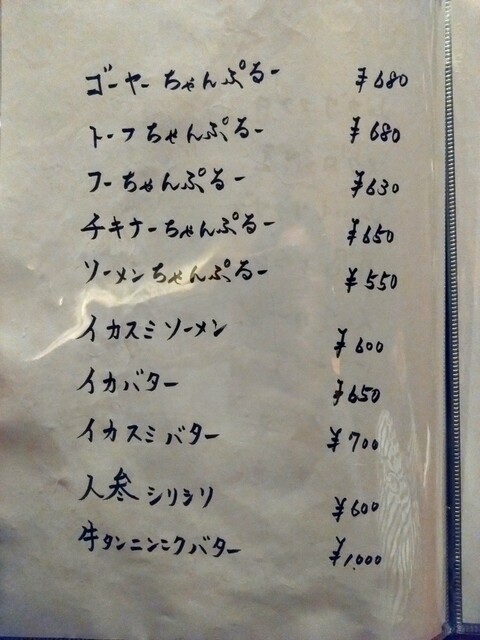 ゴーヤーちゃんぷるー ¥680
トーフちゃんぷるー ¥680
フーちゃんぷるー ¥630
チキナーちゃんぷるー ¥650
ソーメンちゃんぷるー ¥550
イカスミソーメン ¥600
イカバター ¥650
イカスミバター ¥700
人参シリシリ ¥600
牛タンニンニクバター ¥1,000